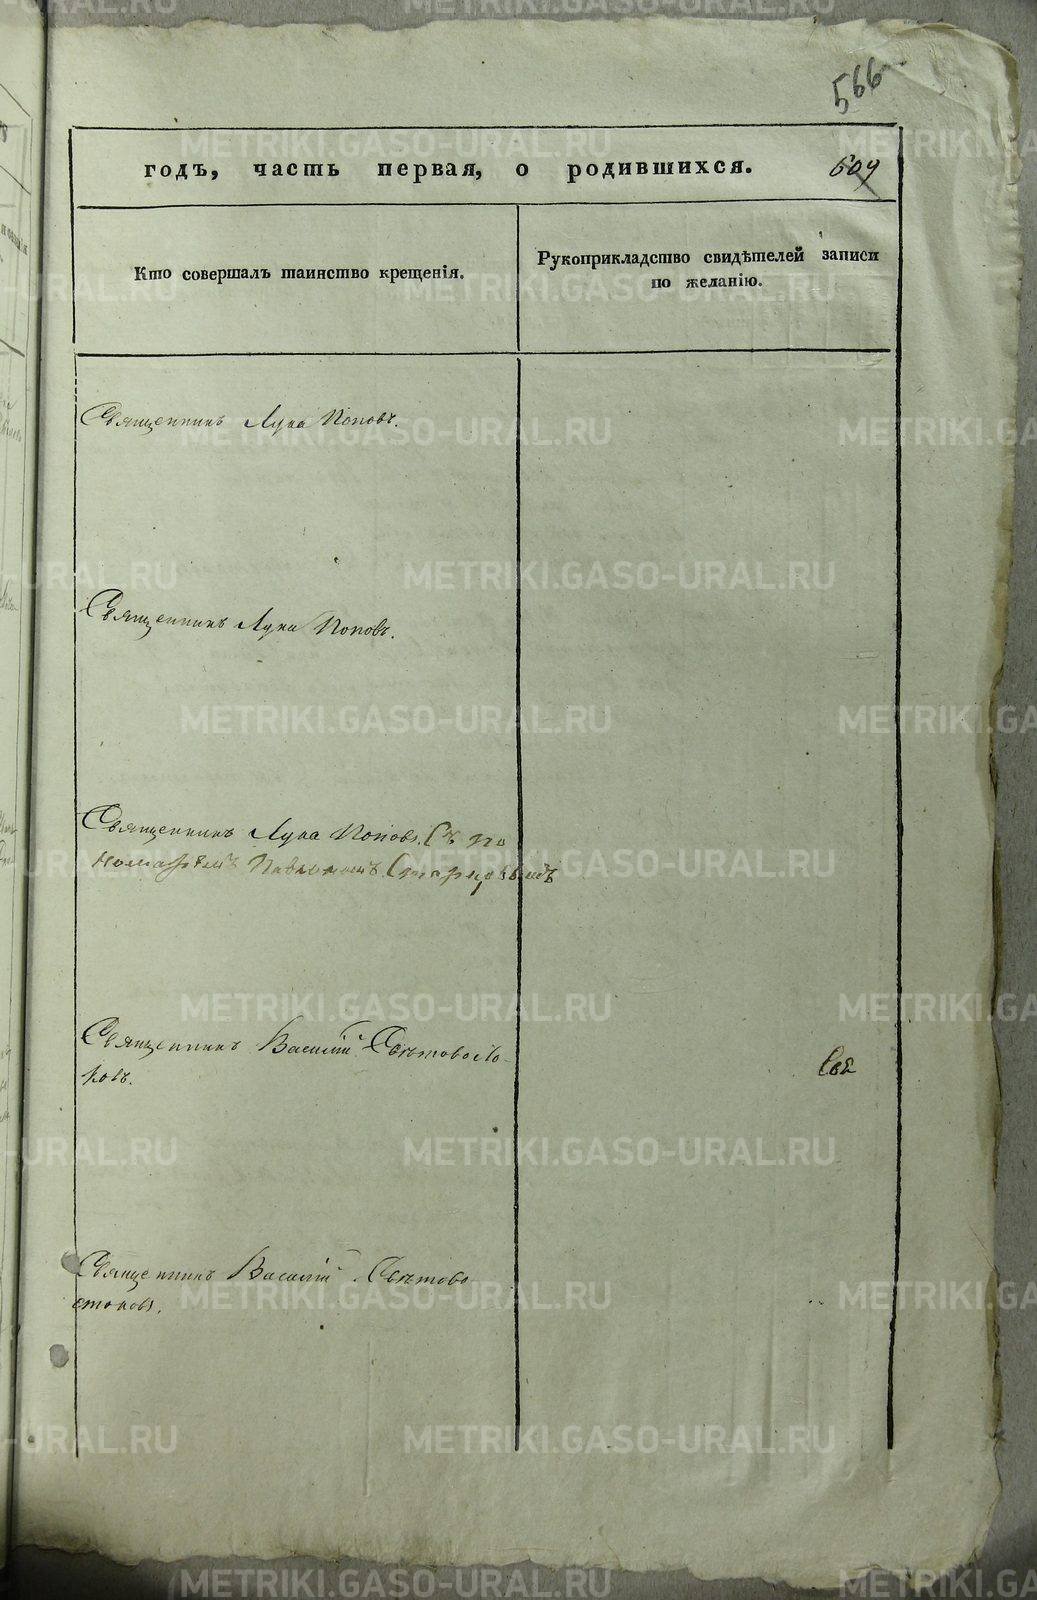 566
годъ, часть первая, о родившихся. 609
Кто совершалъ таинство крещенія.
Рукоприкладство свидѣтелей записи
по желанію.
Священникъ Лука Поповъ.
Священникъ Лука Поповъ.
Священникъ Лука Поповъ. Съ по
номаремъ Павломъ Старцовымъ
Священникъ Василій Свѣтовосто-
ковъ.
Свя
Священникъ Василій Свѣтово
стоковъ.
METRIKI.GASO-URAL.RU